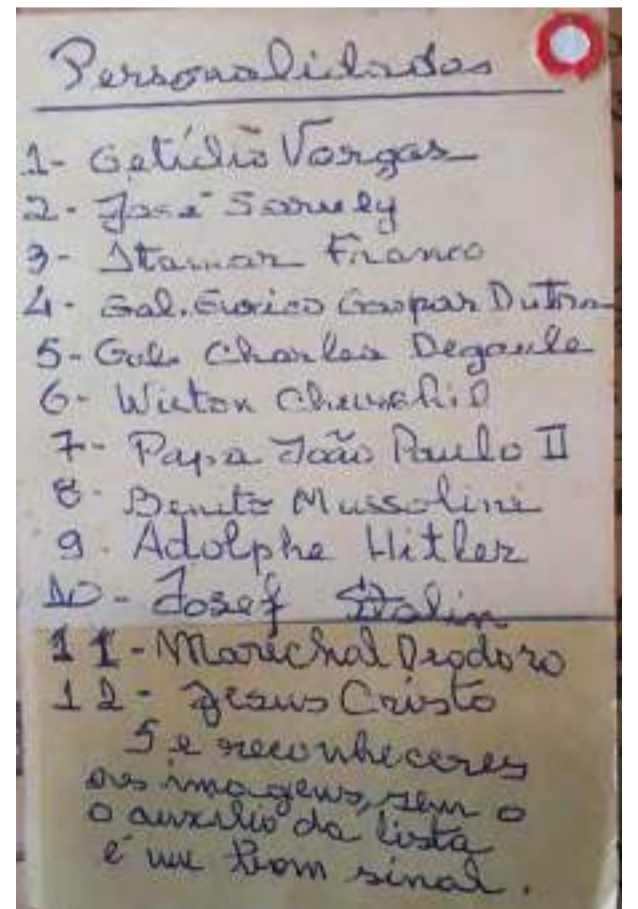 Personalidades
1- Getúlio Vargas
2- José Sarney
3- Itamar Franco
4- Gal. Eurico Gaspar Dutra
5- Gal. Charles Degaule
6- Wiston Churchil
7- Papa João Paulo II
8- Benito Mussolini
9- Adolphe Hitler
10- Josef Stalin
11- Marechal Deodoro
12- Jesus Cristo
Se reconheceres
as imagens, sem o
o auxilio da lista
é um bom sinal.